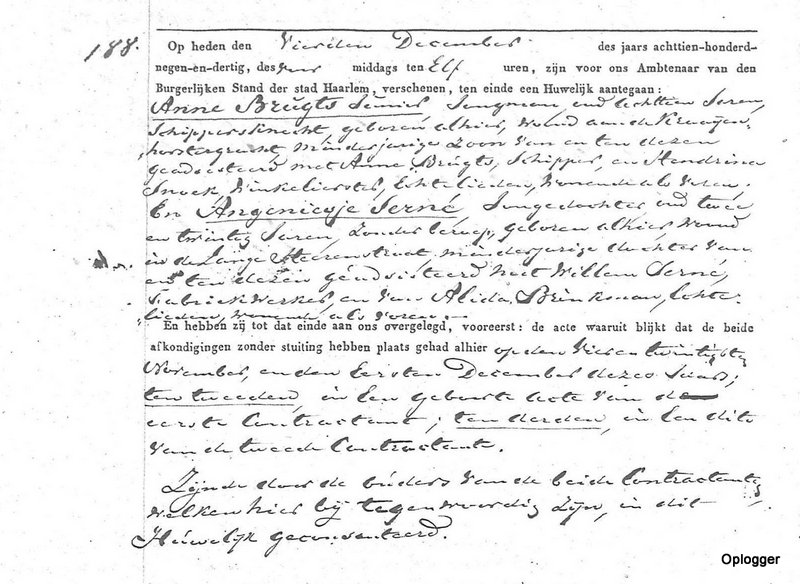 188. Op heden den Vierden December des jaars achttien-honderd-
negen-en-dertig, des voor middags ten Elf uren, zijn voor ons Ambtenaar van den
Burgerlijken Stand der stad Haarlem, verschenen, ten einde een Huwelijk aantegaan:
Anne Brúgts Junior Jongman, oud achttien Jaren,
Schippersknecht, geboren alhier, wonend aan de
minderjarige Zoon van en ten dezen
geadsisteerd met Anne Brúgts, Schipper, en Hendrina
Snoek, Winkelierster, Echtelieden, wonende als voren.
En Angenietje Serné, Jongedochter oud twee
en twintig Jaren, Zonder beroep, geboren alhier wonend
in de Lange Heerenstraat, minderjarige dochter van
en ten dezen geadsisteerd met Willem Serné,
Fabriekwerker, en van Alida Brinkman, Echte-
lieden, wonende als voren.–
En hebben zij tot dat einde aan ons overgelegd, vooreerst: de acte waaruit blijkt dat de beide
afkondigingen zonder stuiting hebben plaats gehad alhier op den Vier en twintigsten
November, en den Eersten December dezes Jaars;
ten tweeden, in een geboorte Acte van de
eerste Contractant; ten derden, in een dito
van de tweede Contractante.
Zijnde door de oúders van de beide Contractanten
welken hier bij tegenwoordig Zijn, in dit
Húwelijk geconsenteerd.
Oplogger